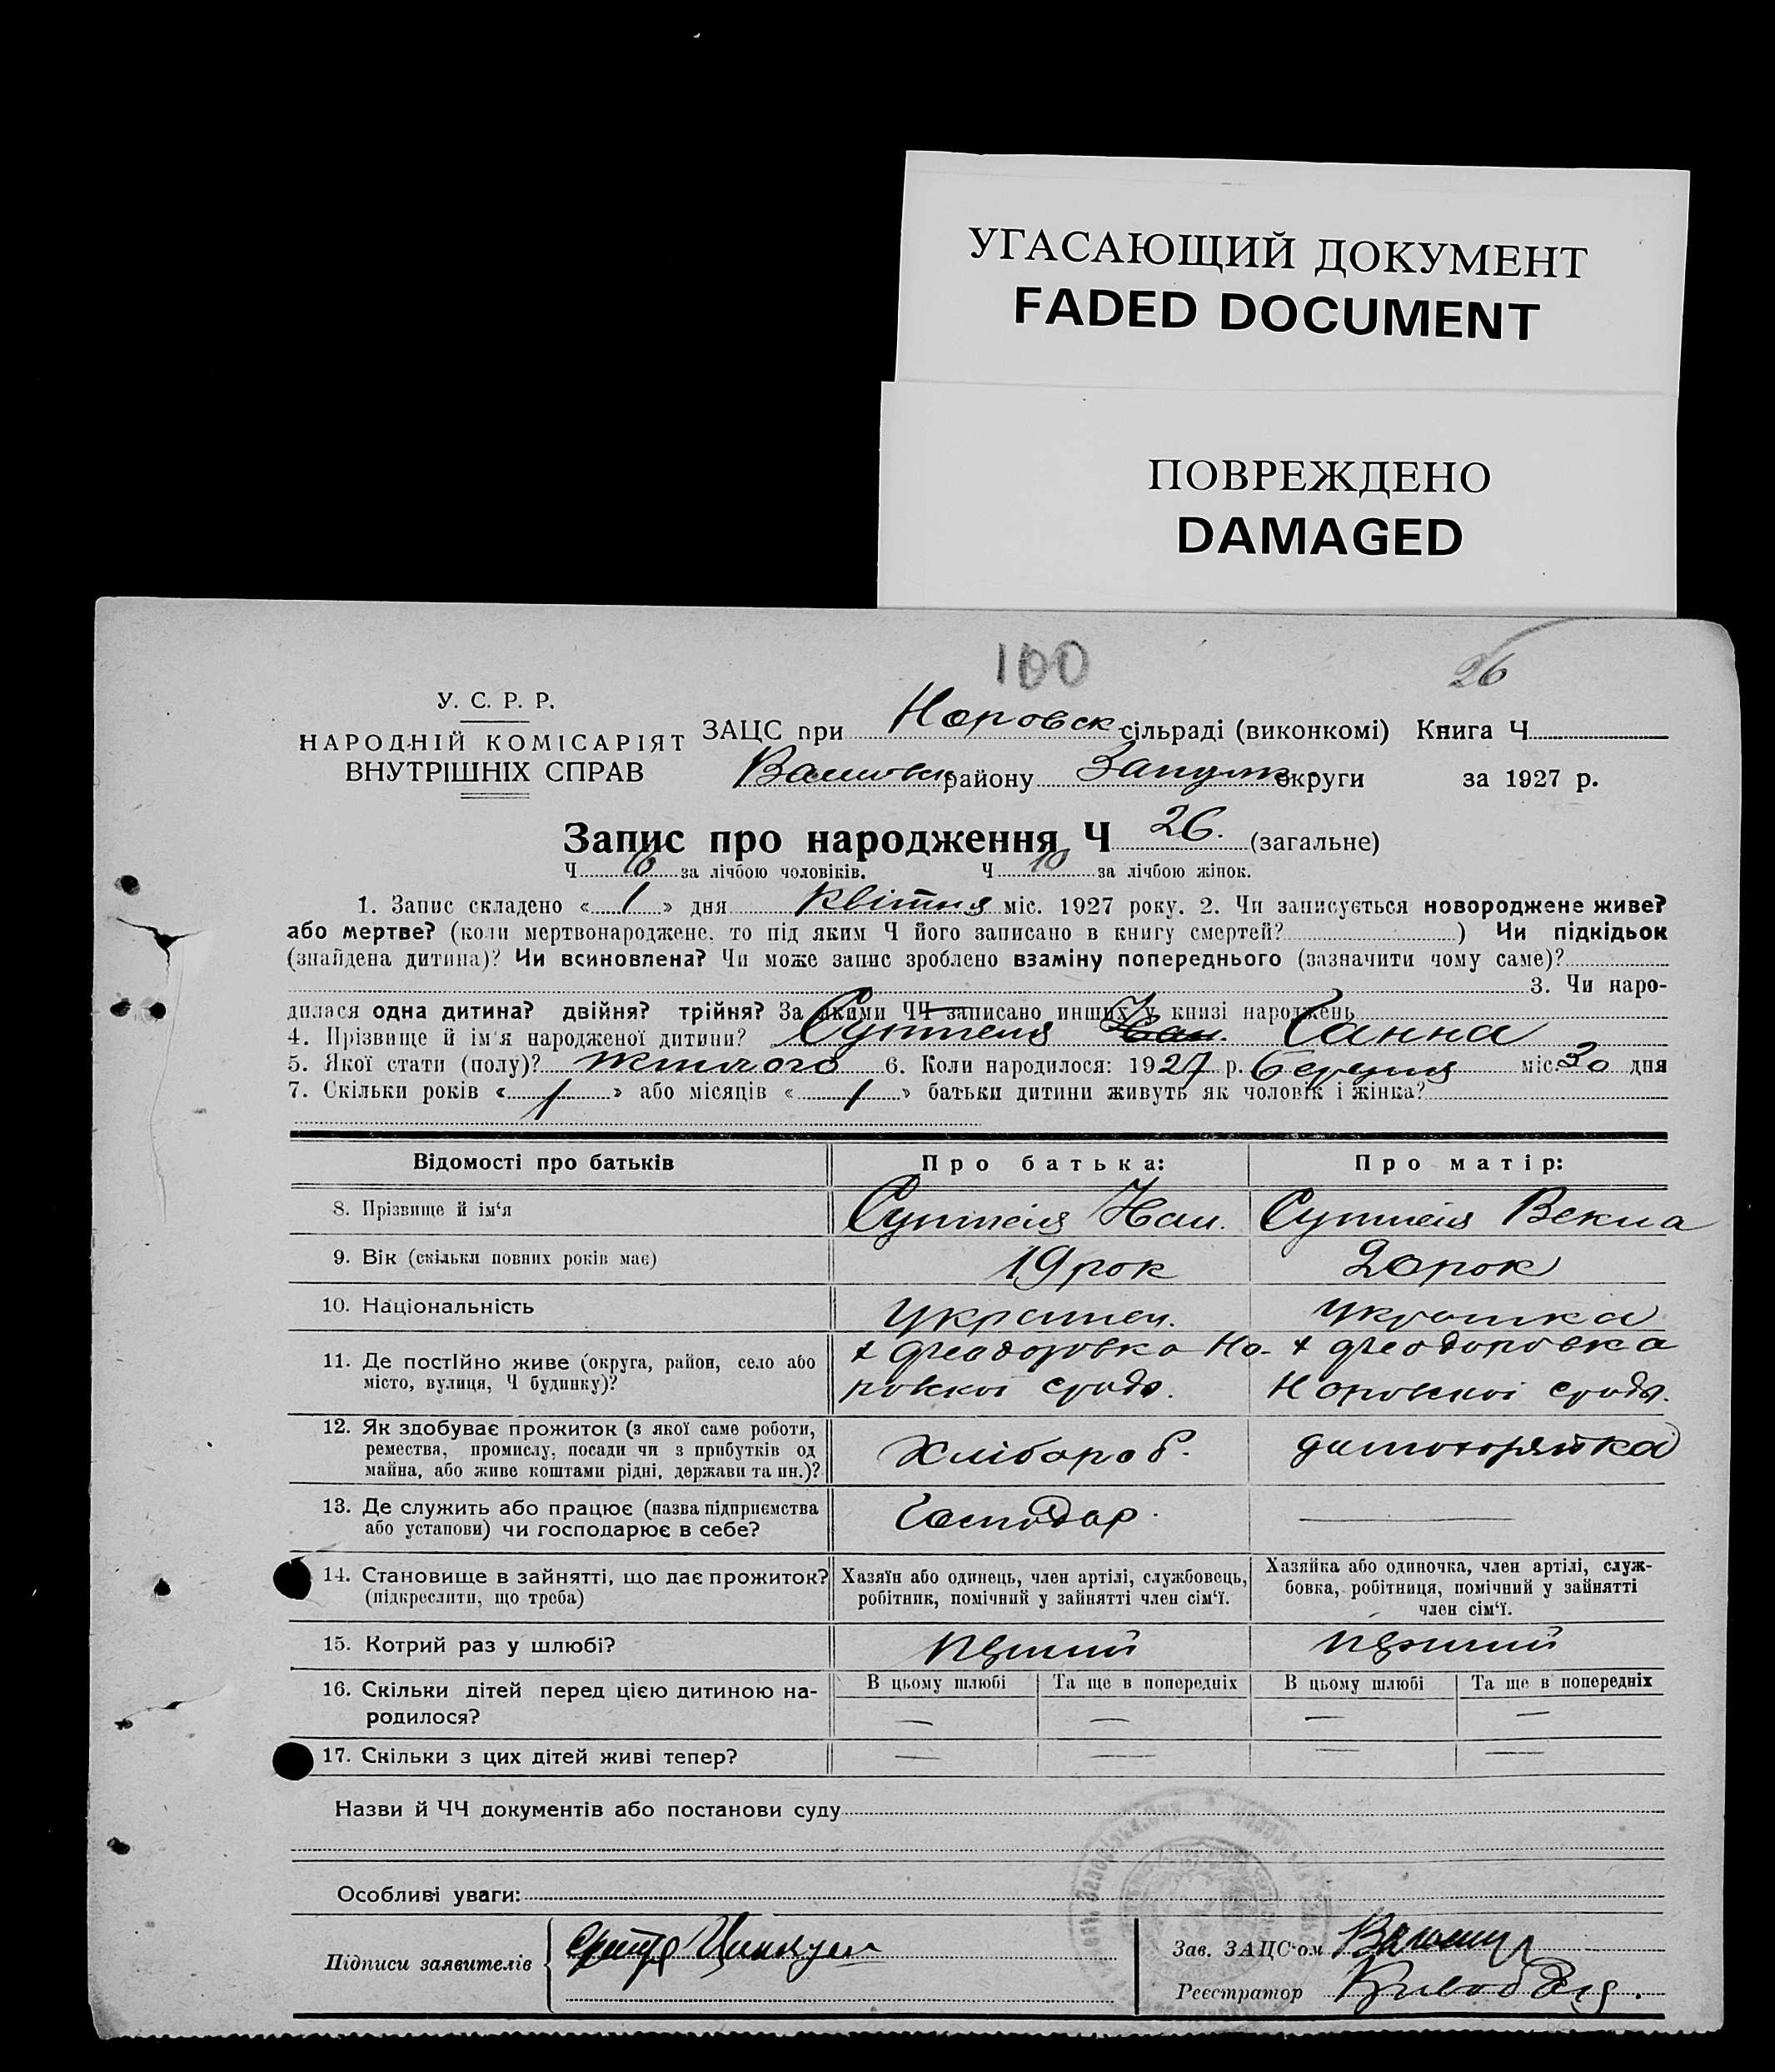 УГАСАЮЩИЙ ДОКУМЕНТ
FADED DOCUMENT
ПОВРЕЖДЕНО
DAMAGED
100
26
У. С. Р. Р.
НАРОДНІЙ КОМІСАРІЯТ
ВНУТРІШНІХ СПРАВ
ЗАЦС при Норовск сільраді (виконкомі) Книга Ч
району округи за 1927 р.
Запис про народження Ч 26. (загальне)
Ч 16 за лічбою чоловіків. Ч 10 за лічбою жінок.
1. Запис складено « 1 » дня Квітня міс. 1927 року. 2. Чи записується новороджене живе?
або мертве? (коли мертвонароджене, то під яким Ч його записано в книгу смертей? ) Чи підкідьок
(знайдена дитина)? Чи всиновлена? Чи може запис зроблено взаміну попереднього (зазначити чому саме)?
3. Чи наро-
дилася одна дитина? двійня? трійня? За якими ЧЧ записано инших у книзі народжень
4. Прізвище й ім'я народженої дитини? Ганна
5. Якої стати (полу)? 6. Коли народилося: 1927 р. Березня міс. 30 дня
7. Скільки років « / » або місяців « / » батьки дитини живуть як чоловік і жінка?
Відомості про батьків
Про батька:
Про матір:
8. Прізвище й ім'я
9. Вік (скільки повних років має) 19 рок 20 рок
10. Національність Украинец. украинка
11. Де постійно живе (округа, район, село або
місто, вулиця, Ч будинку)?
х Феодоровка Но-
ровскоі сради.
х Феодоровка
Норовскоі сради.
12. Як здобуває прожиток (з якої саме роботи,
ремества, промислу, посади чи з прибутків од
майна, або живе коштами рідні, держави та ин.)?
Хлібороб.
13. Де служить або працює (назва підприємства
або установи) чи господарює в себе?
Господар.
14. Становище в зайнятті, що дає прожиток?
(підкреслити, що треба)
Хазяїн або одинець, член артілі, службовець,
робітник, помічний у зайнятті член сім'ї.
Хазяйка або одиночка, член артілі, служ-
бовка, робітниця, помічний у зайнятті
член сім'ї.
15. Котрий раз у шлюбі?
16. Скільки дітей перед цією дитиною на-
родилося?
В цьому шлюбі Та ще в попередніх В цьому шлюбі Та ще в попередніх
— — — —
17. Скільки з цих дітей живі тепер? — — — —
Назви й ЧЧ документів або постанови суду
Особливі уваги:
Підписи заявителів
Зав. ЗАЦС'ом
Реєстратор